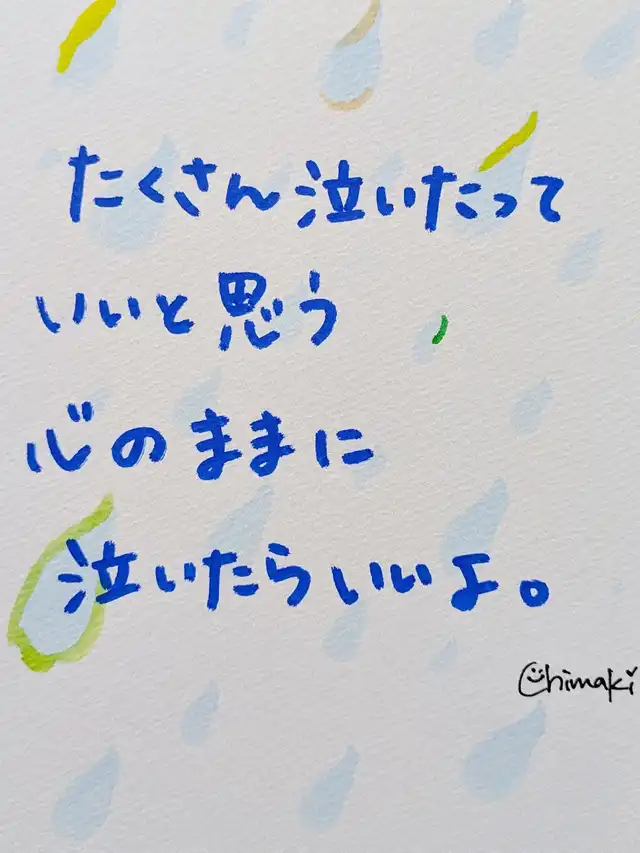 たくさん泣いたって
いいと思う
心のままに
泣いたらいいよ。
Chimaki